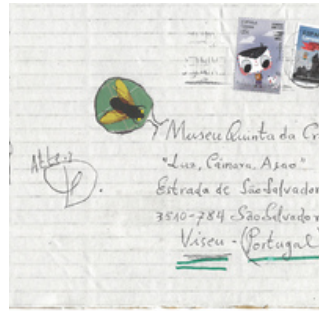 Museu Quinta da Cr
"Luz, Câmara, Acao"
Estrada de São Salvador
3510-784 São Salvador
Viseu - (Portugal)